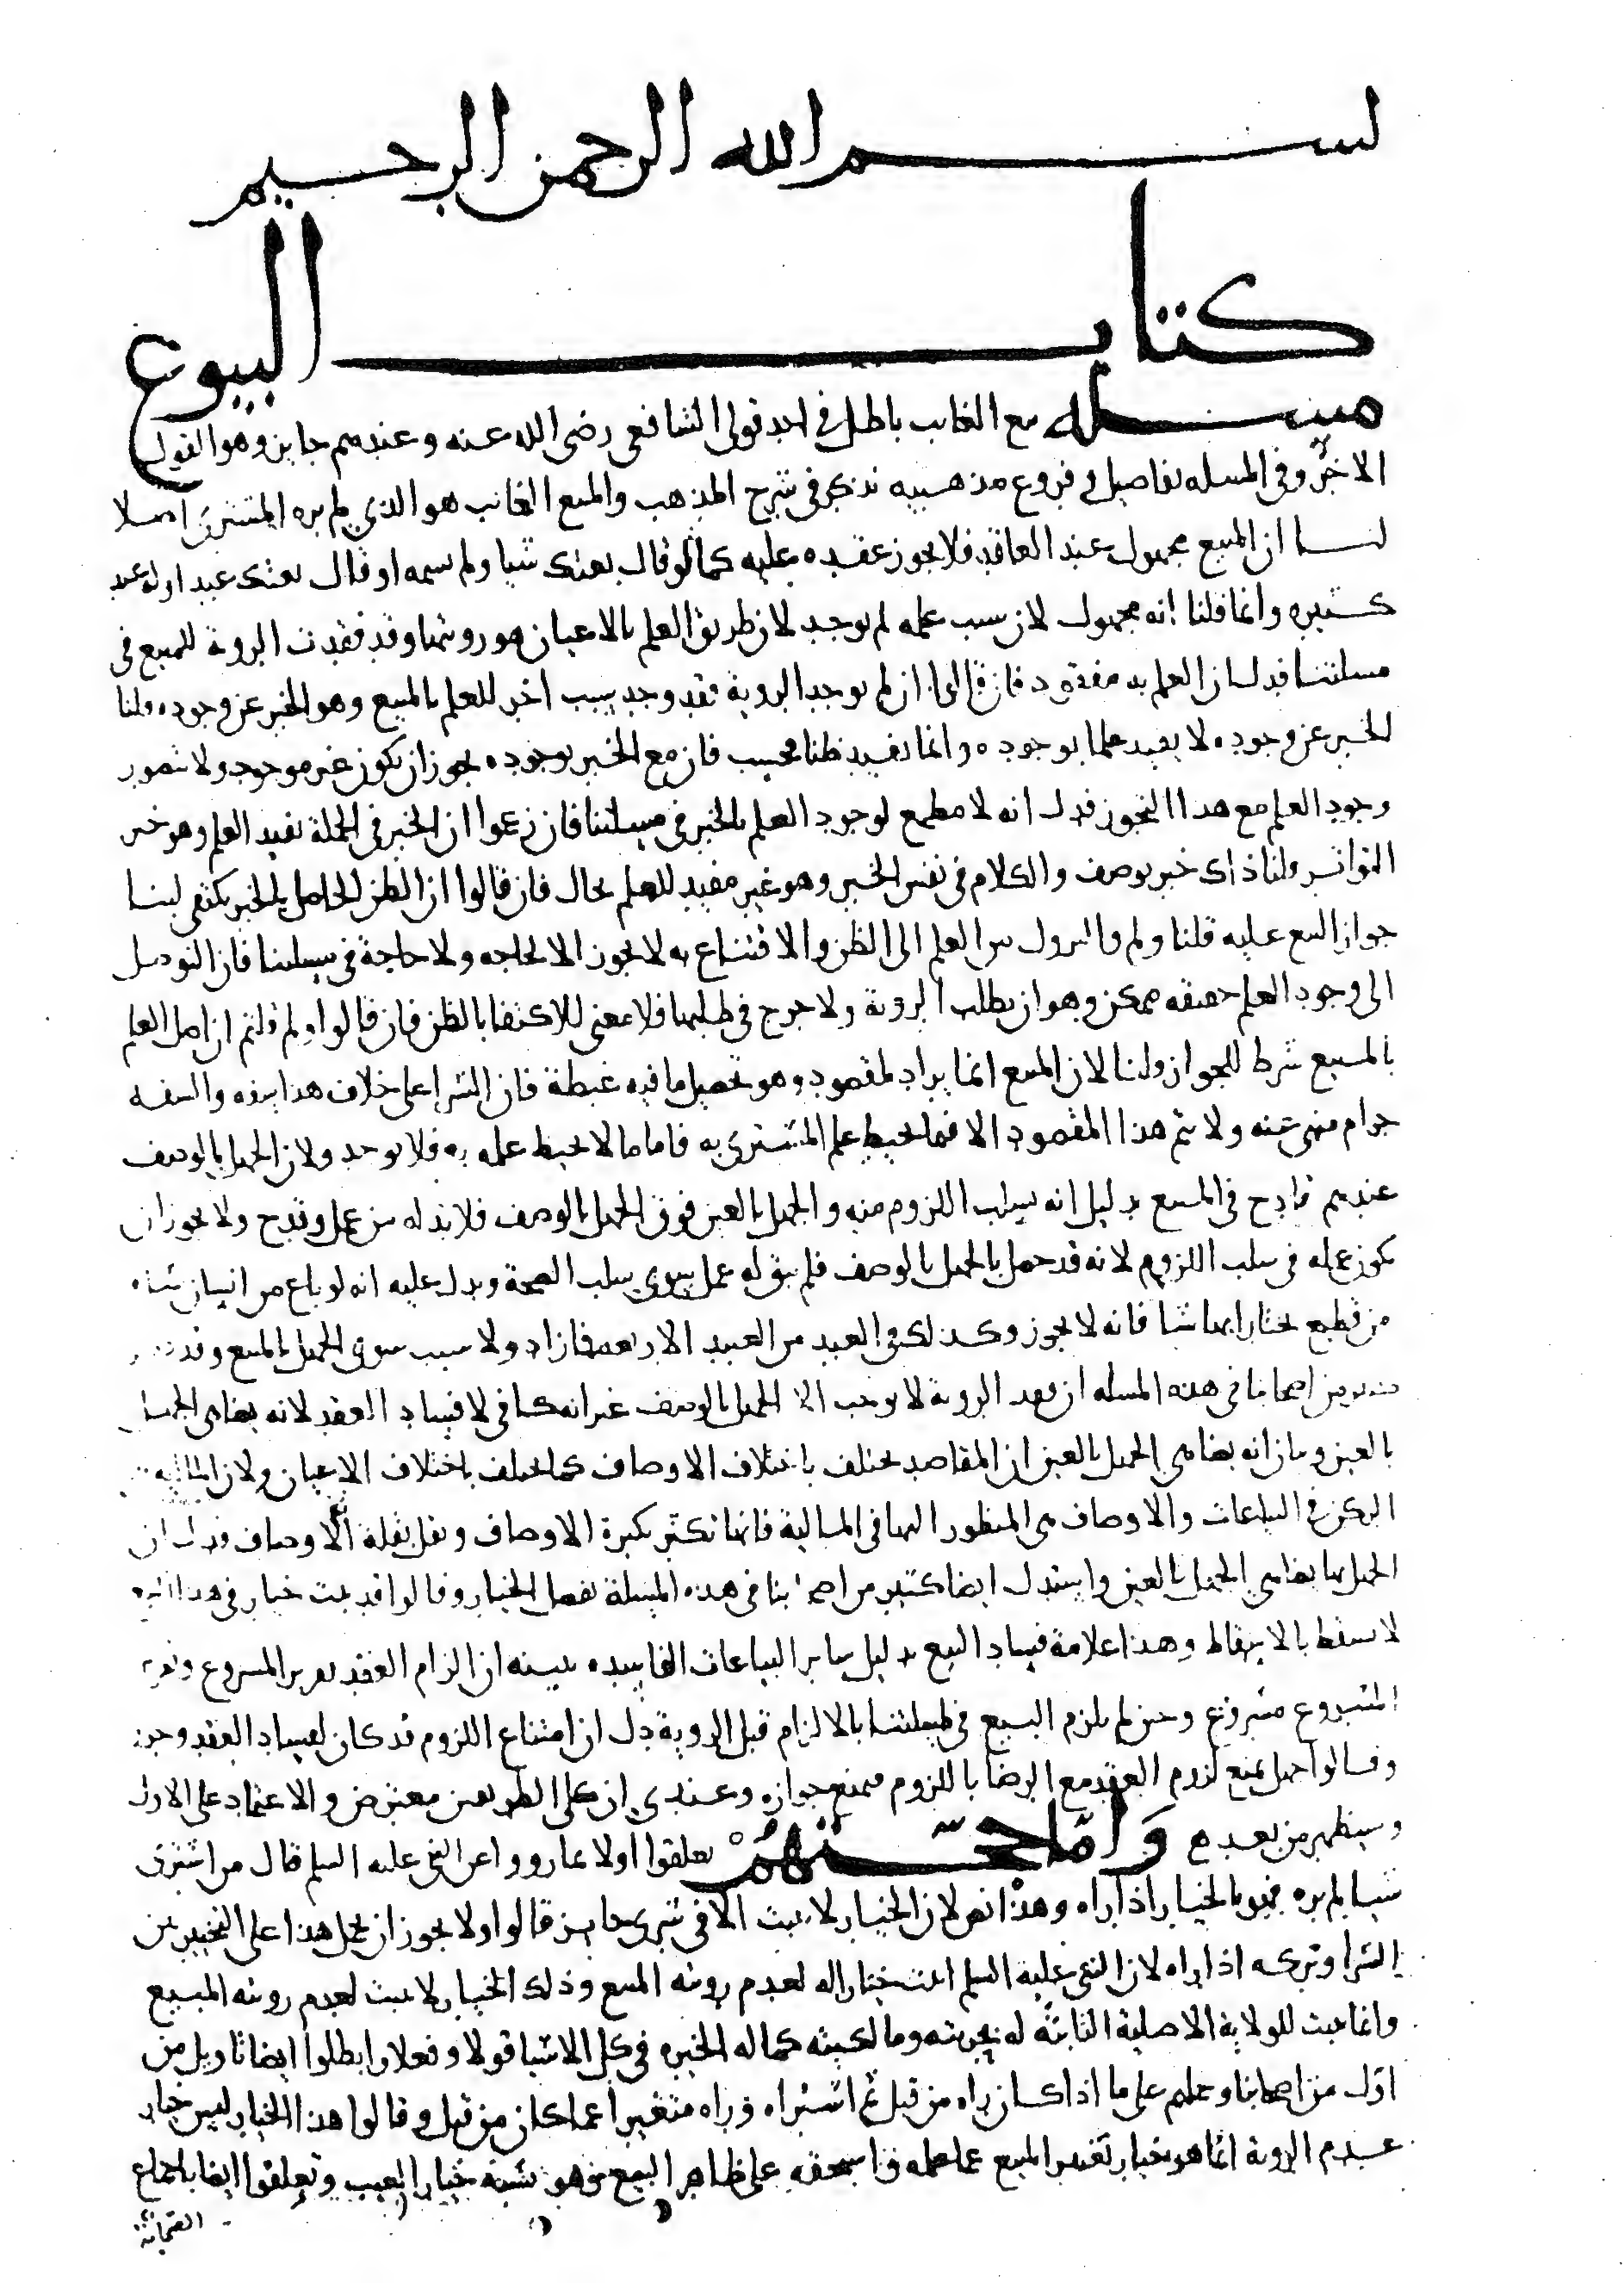 بسم الله الرحمن الرحيم
كتاب البيوع
مسله بيع الغايب باطل في احد قولي الشافعي رضى الله عنه وعندهم جايز وهو القول
الاخر وفي المسله تفاصيل وفروع مذهبيه تذكر في شرح المذهب والمبيع الغايب هو الذي لم يره المشترى اصلا
لنا ان المبيع مجهول عند العاقد فلا يجوز عقده عليه كما لو قال بعتك شيا ولم يسمه او قال بعتك عبدا وله عبيد
كثيره وانما قلنا انه مجهول لان سبب علمه لم يوجد لان طريق العلم بالاعيان هو رويتها وقد فقدت الروية للمبيع في
مسلتنا فدل ان العلم به مفقود فان قالوا ان لم توجد الروية فقد وجد سبب اخر للعلم بالمبيع وهو الخبر عن وجوده قلنا
الخبر عن وجوده لا يفيد علما بوجوده وانما يفيد ظنا فحسب فان مع الخبر بوجوده يجوز ان يكون غير موجود ولا يتصور
وجود العلم مع هذا التجوز فدل انه لا مطمع لوجود العلم بالخبر في مسلتنا فان زعموا ان الخبر في الجملة يفيد العلم وهو خبر
التواتر قلنا ذاك خبر بوصف والكلام في نفس الخبر وهو غير مفيد للعلم بحال فان قالوا ان الظن الحاصل بالخبر يكتفى لبنا
جواز البيع عليه قلنا ولم والنزول من العلم الى الظن والاقتناع به لا يجوز الا لحاجه ولا حاجة في مسلتنا فان التوصل
الى وجود العلم حقيقه ممكن وهو ان يطلب الروية ولا حرج في طلبها فلا معنى للاكتفا بالظن فان قالوا ولم قلتم ان اصل العلم
بالمبيع شرط للجواز قلنا لان المبيع انما يراد لمقصود وهو تحصيل ما فيه غبطة فان الشرا على خلاف هذا سفه والسفه
حرام منهى عنه ولا يتم هذا المقصود الا فيما يحيط علم المشترى به فاما ما لا يحيط علمه به فلا يوجد ولان الجهل بالوصف
عندهم قادح في المبيع بدليل انه يسلب اللزوم منه والجهل بالعين فوق الجهل بالوصف فلا بد له من عمل وقدح ولا يجوز ان
يكون عمله في سلب اللزوم لانه قد حصل بالجهل بالوصف فلم يبق له عمل سوى سلب الصحة ويدل عليه انه لو باع من انسان شاه
من قطيع يختار ايها شا فانه لا يجوز وكذلك في العبد من العبيد الاربعه فما زاد ولا سبب سوى الجهل بالمبيع وقد
من اصحابنا في هذه المسله ان فقد الروية لا يوجب الا الجهل بالوصف غير انه كافي لافساد العقد لانه يضاهي الجهل
بالعين وبيان انه يضاهى الجهل بالعين ان المقاصد تختلف باختلاف الاوصاف كما تختلف باختلاف الاعيان ولان المالية
الركن في البياعات والاوصاف هي المنظور اليها في المالية فانها تكثر بكثرة الاوصاف وتقل بقلة الاوصاف فدل ان
الجهل بها يضاهي الجهل بالعين واستدل ايضا كثير من اصحابنا في هذه المسلة بفصل الخيار وقالوا قد ثبت خيار في هذا
لا يسقط بالاسقاط وهذا علامة فساد البيع بدليل ساير البياعات الفاسده يبينه ان الزام العقد تقرير المشروع وتقرير
المشروع مشروع وحين لم يلزم البيع في مسلتنا بالالزام قبل الروية دل ان امتناع اللزوم قد كان لفساد العقد
وقالوا جهل يمنع لزوم العقد مع الرضا باللزوم فيمنع جوازه وعندي ان كلى الطريقين معترض والاعتماد على الاول
وسيظهر من بعد واما حجتهم تعلقوا اولا بما رووا عن النبى عليه السلم قال من اشترى
شيا لم يره فهو بالخيار اذا راه وهذا نص لان الخيار لا يثبت الا في شرى جايز قالوا ولا يجوز ان يحمل هذا على التخيير بين
الشرا وتركه اذا راه لان النبى عليه السلم اثبت خيارا له لعدم رويته المبيع وذلك الخيار لا يثبت لعدم رويته المبيع
وانما يثبت للولاية الاصلية الثابتة له بحريته ومالكيته كما له الخيره في كل الاشيا قولا وفعلا وابطلوا ايضا تاويل من
اول من اصحابنا وحملهم على ما اذا كان راه من قبل ثم اشتراه وراه متغيرا عما كان من قبل وقالوا هذا الخيار ليس خيار
عدم الروية انما هو خيار تغير المبيع عما علمه واستحقه على ظاهر البيع وهو يشبه خيار العيب وتعلقوا ايضا باجماع
الصحابة